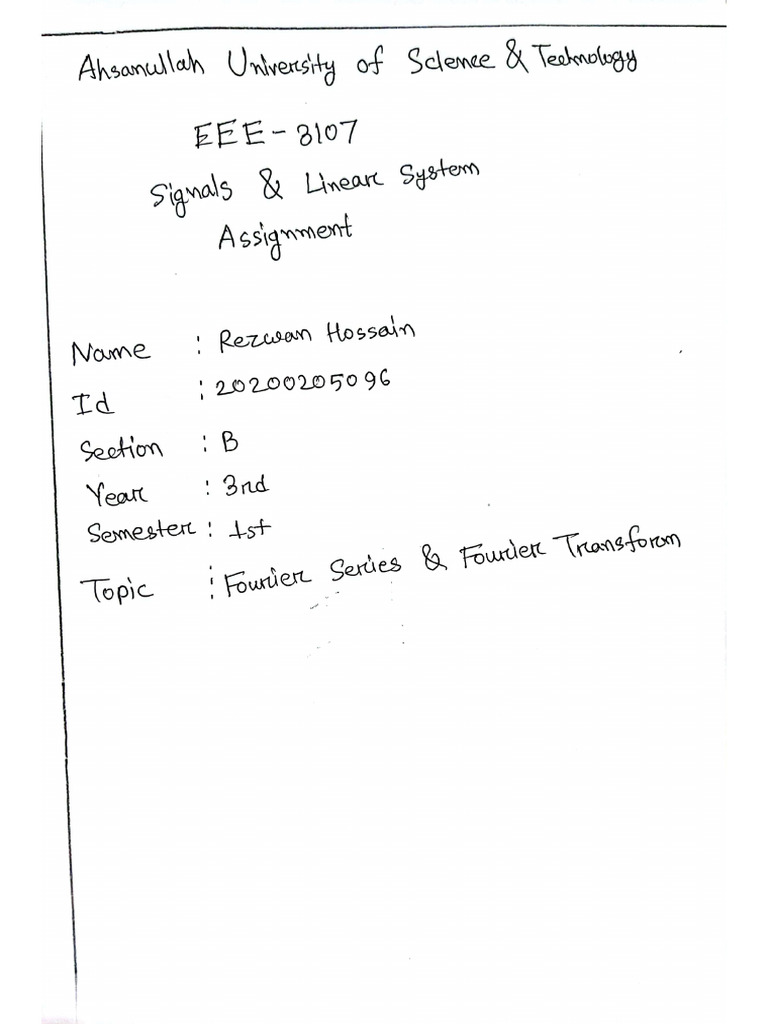 Ahsanullah University of Science & Technology
EEE-3107
Signals & Linear System
Assignment
Name : Rezwan Hossain
Id : 20200205096
Section : B
Year : 3rd
Semester : 1st
Topic : Fourier Series & Fourier Transform